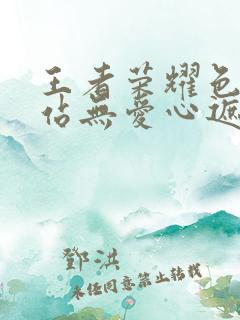 王者荣耀色
佔無爱心遮
鄧洪
未经同意禁止转载